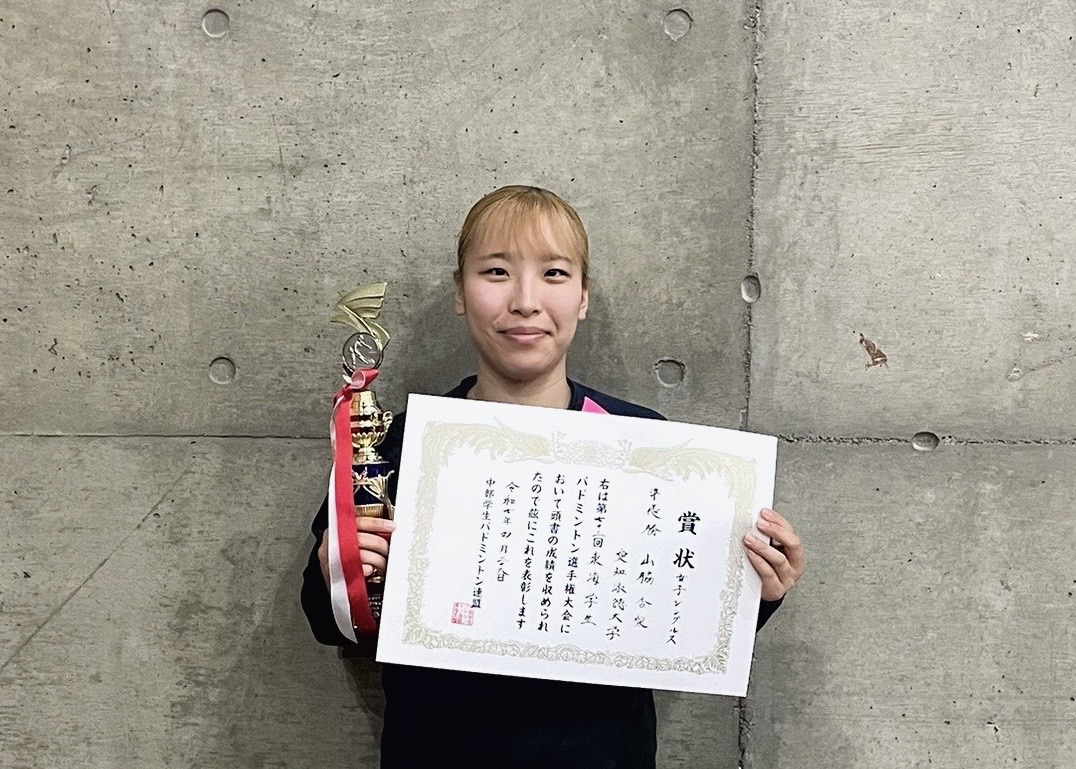 賞状
女子シングルス
準優勝 山脇杏梨
愛知淑徳大学
右は第七十一回東海学生
バドミントン選手権大会に
おいて頭書の成績を収められ
たので茲にこれを表彰します
令和七年四月二八日
中部学生バドミントン連盟